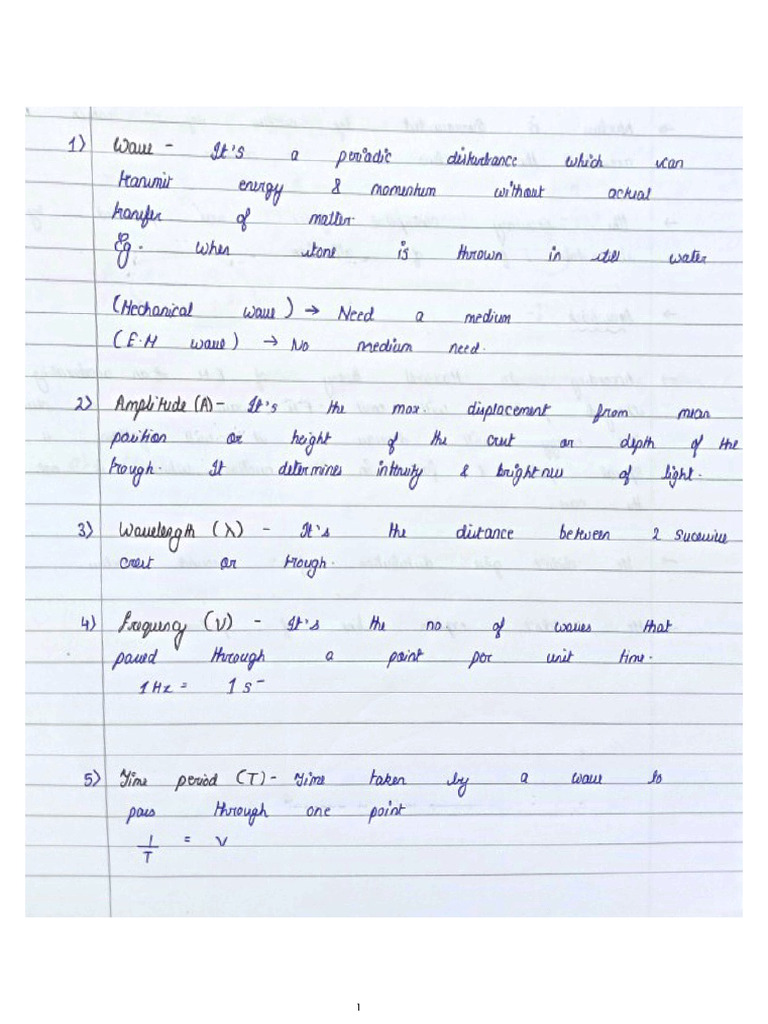 1) Wave - It's a periodic disturbance which can
transmit energy & momentum without actual
transfer of matter.
Eg. when stone is thrown in still water
(Mechanical wave) → Need a medium
(E.M wave) → No medium need.
2) Amplitude (A) - It's the max displacement from mean
position or height of the crest or depth of the
trough. It determines intensity & brightness of light.
3) Wavelength (λ) - It's the distance between 2 sucessive
crest or trough.
4) Frequency (ν) - It's the no. of waves that
passed through a point per unit time.
1 Hz = 1 s⁻
5) Time period (T) - Time taken by a wave to
pass through one point
1/T = ν
1